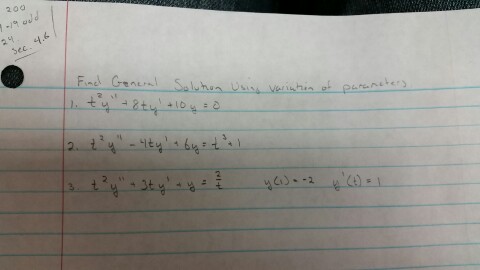 200
-19 odd
24
sec. 4.6
Find General Solution Using variation of parameters
1. t²y'' + 8ty' + 10y = 0
2. t²y'' - 4ty' + 6y = t³ + 1
3 t²y'' + 3ty' + y = 2/t y(1) = -2 y'(t) = 1